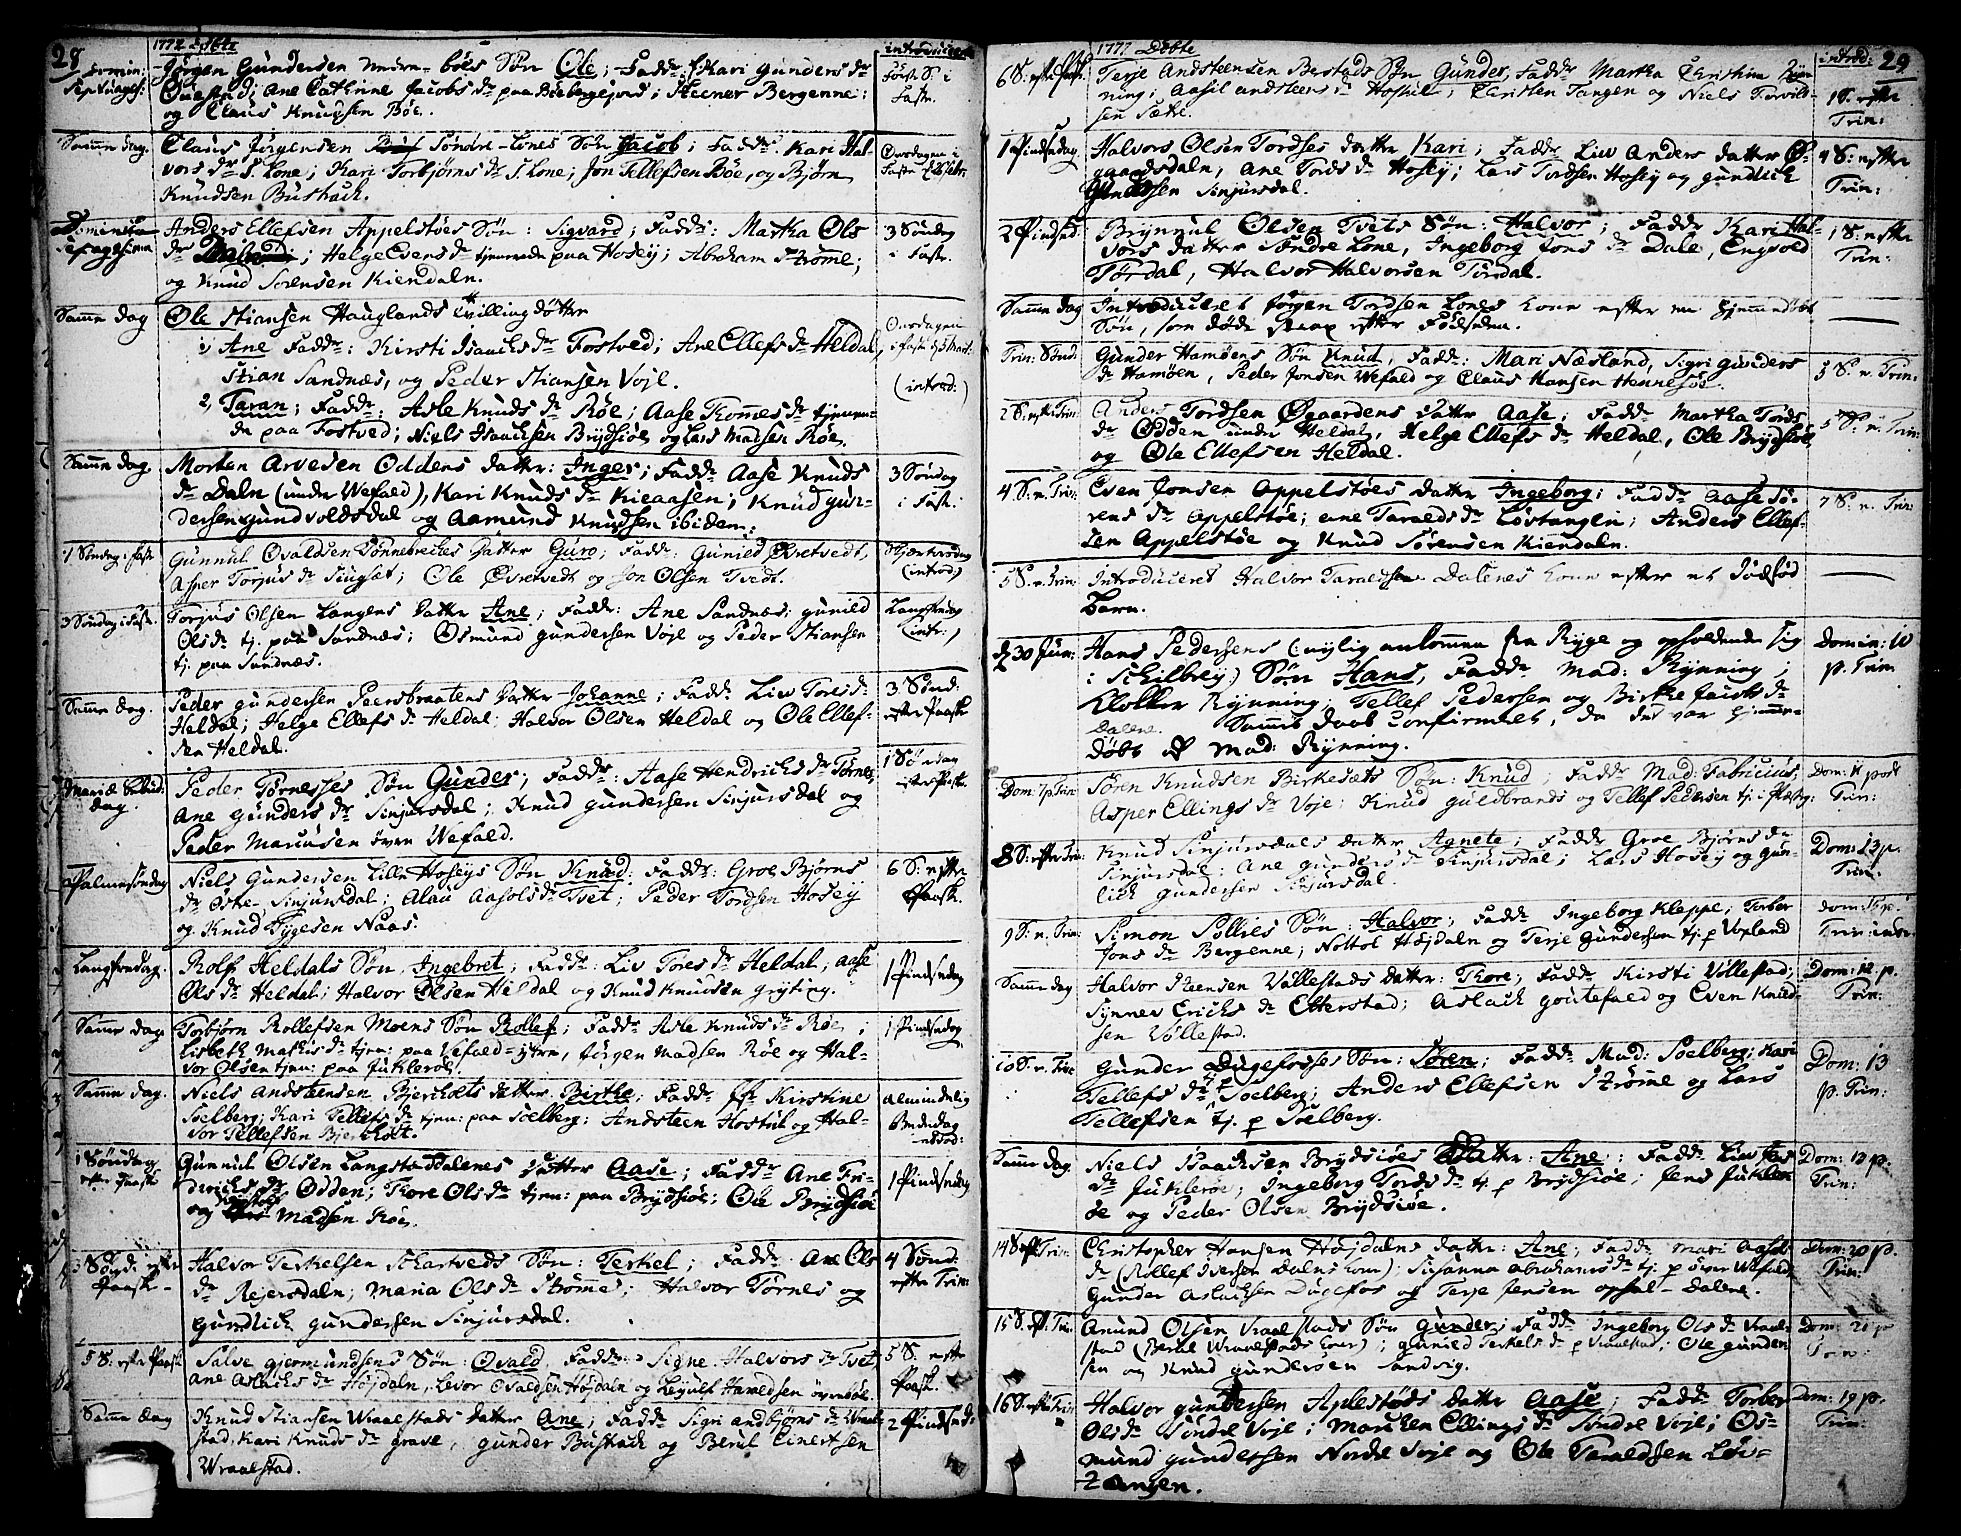 28
1772 Døbte
introducerede
Domin: Septuages:
Jørgen Gundersen Nedre-böes Sön Ole; Fadd: Kari Gunders dr
Ane Cathrine Jacobs dr paa Steener Bergenne;
og Claus Knudsen Böe.
Fast.
Samme dag.
Claus Jörgensen Söndre-Lones Sön Jacob; Fadd: Kari Hal-
vors dr S. Lone; Kari Torbjørns dr S. Lone; Jon Tellefsen Böe, og Björn
Knudsen Büshack.
Onsdagen i Faste
Dominica Sexagesima
Anders Ellefsen Appelstöes Sön: Sigvard; Fadd: Martha Ols
dr ; Helge Evens dr tjenende paa Hosey; Abraham Strøme;
og Knud Sorensen Kiendaln.
3 Söndag i Fast.
Samme dag
Ole Stiansen Hauglands Tvilling döttre
1, Ane Fadd: Kirsti Isaachs dr Tostved; Ane Ellefs dr Heldal,
Stian Sandnæs, og Peder Stiansen Vojl.
2, Taran; Fadd: Asle Knuds dr Röe; Aase Tommes dr tjenen-
de paa Tostved; Niels Isaachsen Brydsiöe og Lars Madsen Röe.
Onsdagen i Fast d 5 Mart: (introd:)
Samme dag
Morten Arvesen Oddens datter: Inger; Fadd: Aase Knuds
dr Daln (under Wefald), Kari Knuds dr Kieansen; Knud Gun-
dersen Gundvoldsdal og Aamund Knudsen ibidem.
3 Söndag i Fast.
1 Söndag i Fast
Gunnul Osvaldsen Datter Guro; Fadd: Gunild Ovretvedt,
Asper Torjus dr ; Ole Ovretvedt og Jon Olsen Tvedt.
(introd:)
3 Söndag i Fast.
Torjus Olsen Langens datter Ane; Fadd: Ane Sandnæs; Gunild
Ols dr tj. paa Sandnæs; Osmund Gundersen Vojl og Peder Stiansen
tj. paa Sandnæs.
Langfredag (intr:)
Samme dag.
Peder Gundersen Peersbraatens datter Johanne; Fadd: Liv Tores dr
Heldal; Helge Ellefs dr Heldal; Halvor Olsen Heldal og Ole Ellef-
sen Heldal.
3 Sönd: efter Paask
Mariæ Bebud: dag.
Peder Törneses Sön Gunder; Fadd: Aase Hendrichs dr Törnes,
Ane Gunders dr Sinjursdal; Knud Gundersen Sinjursdal og
Peder Mariusen övre Wefald.
1 Söndag efter Paask.
Palmesöndag
Niels Gundersen Lille Hoseys Sön Knud; Fadd: Groe Björns
dr Ostre Sinjursdal; Alau Aasols dr Tvet; Peder Tordsen Hosey
og Knud Tygesen Naas.
6 S: efter Paask.
Langfredag.
Rolf Heldals Sön Ingebret; Fadd: Liv Tores dr Heldal, Aase
Ols dr Heldal; Halvor Olsen Heldal og Knud Knudsen Gryting.
1 Pindsedag
Samme dag
Torbjörn Rollefsen Moens Sön Rollef; Fadd: Asle Knuds dr Röe;
Lisbeth Mathis dr tjen: paa Vefald, Jørgen Madsen Röe og Hal-
vor Olsen tjen: paa Juklerøe.
1 Pindsedag
Samme dag.
Niels Andsteensen Bjerkholts datter Birthe; Fadd: Kirstine
Soelberg; Kari Tellefs dr tjen: paa Soelberg; Andsteen Hostul og Hal-
vor Tellefsen Bjerkholt.
Almindelig Bededag
1 Söndag efter Paask
Gunnul Olsen Langstaddalenes datter Aase; Fadd: Ane Fri-
derichs dr Odden; Thore Ols dr tjen: paa Brydsiöe; Ole Brydsiöe
og Madsen Röe.
1 Pindsedag
3 Sönd: efter Paask
Halvor Terkelsen Schartveds Sön: Terkel; Fadd: Ane Ols
dr Rejersdaln; Maria Ols dr Strömme; Halvor Törnes og
Gundlich Gundersen Sinjursdal.
4 Sönd: efter Trin:
5 S. efter Paask
Salve Gjermundsens Sön: Osvald. Fadd: Signe Halvors dr Tvet,
Ane Aslachs dr Höjdaln, Levor Osvaldsen Höjdaln og Leyulf Haraldsen övreböe.
5 S. efter Paask.
Samme dag
Knud Stiansen Wraalstads datter Ane; Fadd: Sigri Andbjörns dr Wraal-
stad, Kari Knuds dr Grave, Gunder Bushack og Berul Einertsen
Wraalstad.
2 Pindsed:
1772 Døbte
introd:
29
6 S. efter Paask.
Terje Andsteensen Berstads Sön Gunder; Fadd: Martha Christina Ryn-
ning; Aasil Andsteens dr Hostul; Christen Tangen og Niels Torvild-
sen Sætre.
1 S. efter Trin:
1 Pindsedag
Halvors Olsen Tordses datter Kari; Fadd: Liv Anders datter Ö-
gaardsdaln, Ane Tords dr Hosey; Lars Tordsen Hosey og Gundlich
Sinjursdal.
4 S: efter Trin:
2 Pindsed:
Brynnul Olsen Tvets Sön: Halvor; Fadd: Kari Hal-
vors datter Söndre Lone, Ingeborg Jons dr Dale, Engvold
Tördal, Halvor Halvorsen Tördal.
1 S: efter Trin:
Samme dag
Introduceret Jörgen Tordsen Lones kone efter en hjemmedöbt
Sön, som döde strax efter Födselen.
Trin: Sönd:
Gunder Hamöens Sön Knud, Fadd: Mari Næsland, Sigri Gunders
dr Hamöen, Peder Jonsen Wefald og Claus Hansen Hennesöe.
3 S. e. Trin:
2 S: eft: Trin:
Anders Tordsen Ögaardens datter Aase; Fadd: Martha Tords
dr Odden under Heldal, Helge Ellefs dr Heldal, Ole Brydsiöe
og Ole Ellefsen Heldal.
5 S. e. Trin:
4 S. e. Trin:
Even Jonsen Appelstöes datter Ingeborg; Fadd: Aase Sö-
rens dr Appelstöe; Ane Taralds dr Løvtangen; Anders Ellef-
sen Appelstöe og Knud Sörensen Kiendaln.
7 S. e. Trin:
5 S. e. Trin:
Introduceret Halvor Taraldsen Dalenes kone efter et dödföd
barn.
d 30 Jun:
Hans Pedersens (nylig ankommen fra Ryge og opholdende sig
i Schilbrey) Sön Hans, Fadd: Mad: Rynning;
Klokker Rynning; Tellef Pedersen og Birthe Jacobs dr
Dalene. Samme Daab Confirmeret, da det var hjemme-
döbt af Mad: Rynning.
Domin: 10 p. Trin:
Dom: 7 p Trin:
Sören Knudsen Birkesæts Sön: Knud; Fadd: Mad: Fabricius;
Asper Ellings dr Voje; Knud Guldbrands og Tellef Pedersen tj. i Præsteg:
Dom: 11 post Trin:
8 S: efter Trin:
Knud Sinjursdals datter Agnete; Fadd: Groe Björns dr
Sinjursdal; Ane Gunders dr Sinjursdal; Lars Hosey og Gun-
lich Gundersen Sinjursdal.
Dom: 13 p. Trin.
9 S. e. Trin:
Simon Sollies Sön: Halvor; Fadd: Ingeborg Kleppe; Torber
Jons dr Bergenne; Nottol Höjdaln og Terje Gundersen tj. p Vopland
Samme dag
Halvor Steensen Völlestads datter: Thore; Fadd: Kirsti Völlestad;
Synnev Erichs dr Etterstad; Aslach Goutefald og Even Knud-
sen Völlestad.
Dom: 12 p. Trin:
10 S. e. Trin
Gunder Dugefosses Sön: Sören; Fadd: Mad: Soelberg; Kari
Tellefs dr Soelberg; Anders Ellefsen Strömme og Lars
Tellefsen tj. p Soelberg.
Dom: 13 p. Trin:
Samme dag
Niels Isaachsen Brydsiöes datter: Ane; Fadd: Liv
dr Juklerøe; Ingeborg Tords dr tj. p Brydsiöe; Jens Jukler-
öe og Peder Olsen Brydsiöe.
Dom: 13 p. Trin:
14 S eft Trin:
Christopher Hansen Höjdalns datter: Ane; Fadd: Mari Aasol
dr (Rollef Iversen Dalens kone); Susanna Abrahams dr tj. p övre Wefald
Gunder Aslachsen Dugefos og Terje Jensen ophol- Dalene.
Dom: 20 p. Trin:
15 S. eft. Trin.
Amund Olsen Vraalstads Sön Gunder; Fadd: Ingeborg Ols dr Vraal-
stad (Berul Wraalstads kone); Gunild Terkels dr p Vraalstad; Ole Gunder-
sen og Knud Gundersen Sandvig.
Dom: 21 p Trin:
16 S. eft. Trin
Halvor Gundersen Aplestöds datter Aase; Fadd: Torber
Ols dr Söndre Voje; Marichen Ellings dr Söndre Voje; Os-
mund Gundersen Nordre Voje og Ole Taraldsen Löv-
tangen.
Dom: 19 p. Trin: